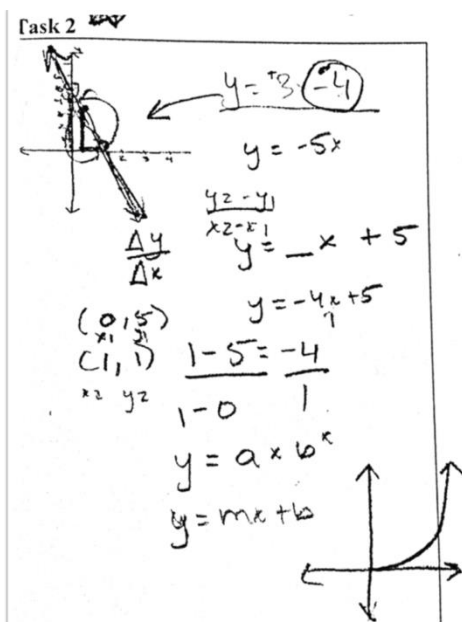 Task 2
y = +3 · -4
y = -5x
y2 - y1
x2 - x1
y = _ x + 5
Δy
Δx
y = -4x + 5
1
(0, 5)
x1 y1
(1, 1)
x2 y2
1 - 5 = -4
1 - 0 1
y = a × b^x
y = mx + b